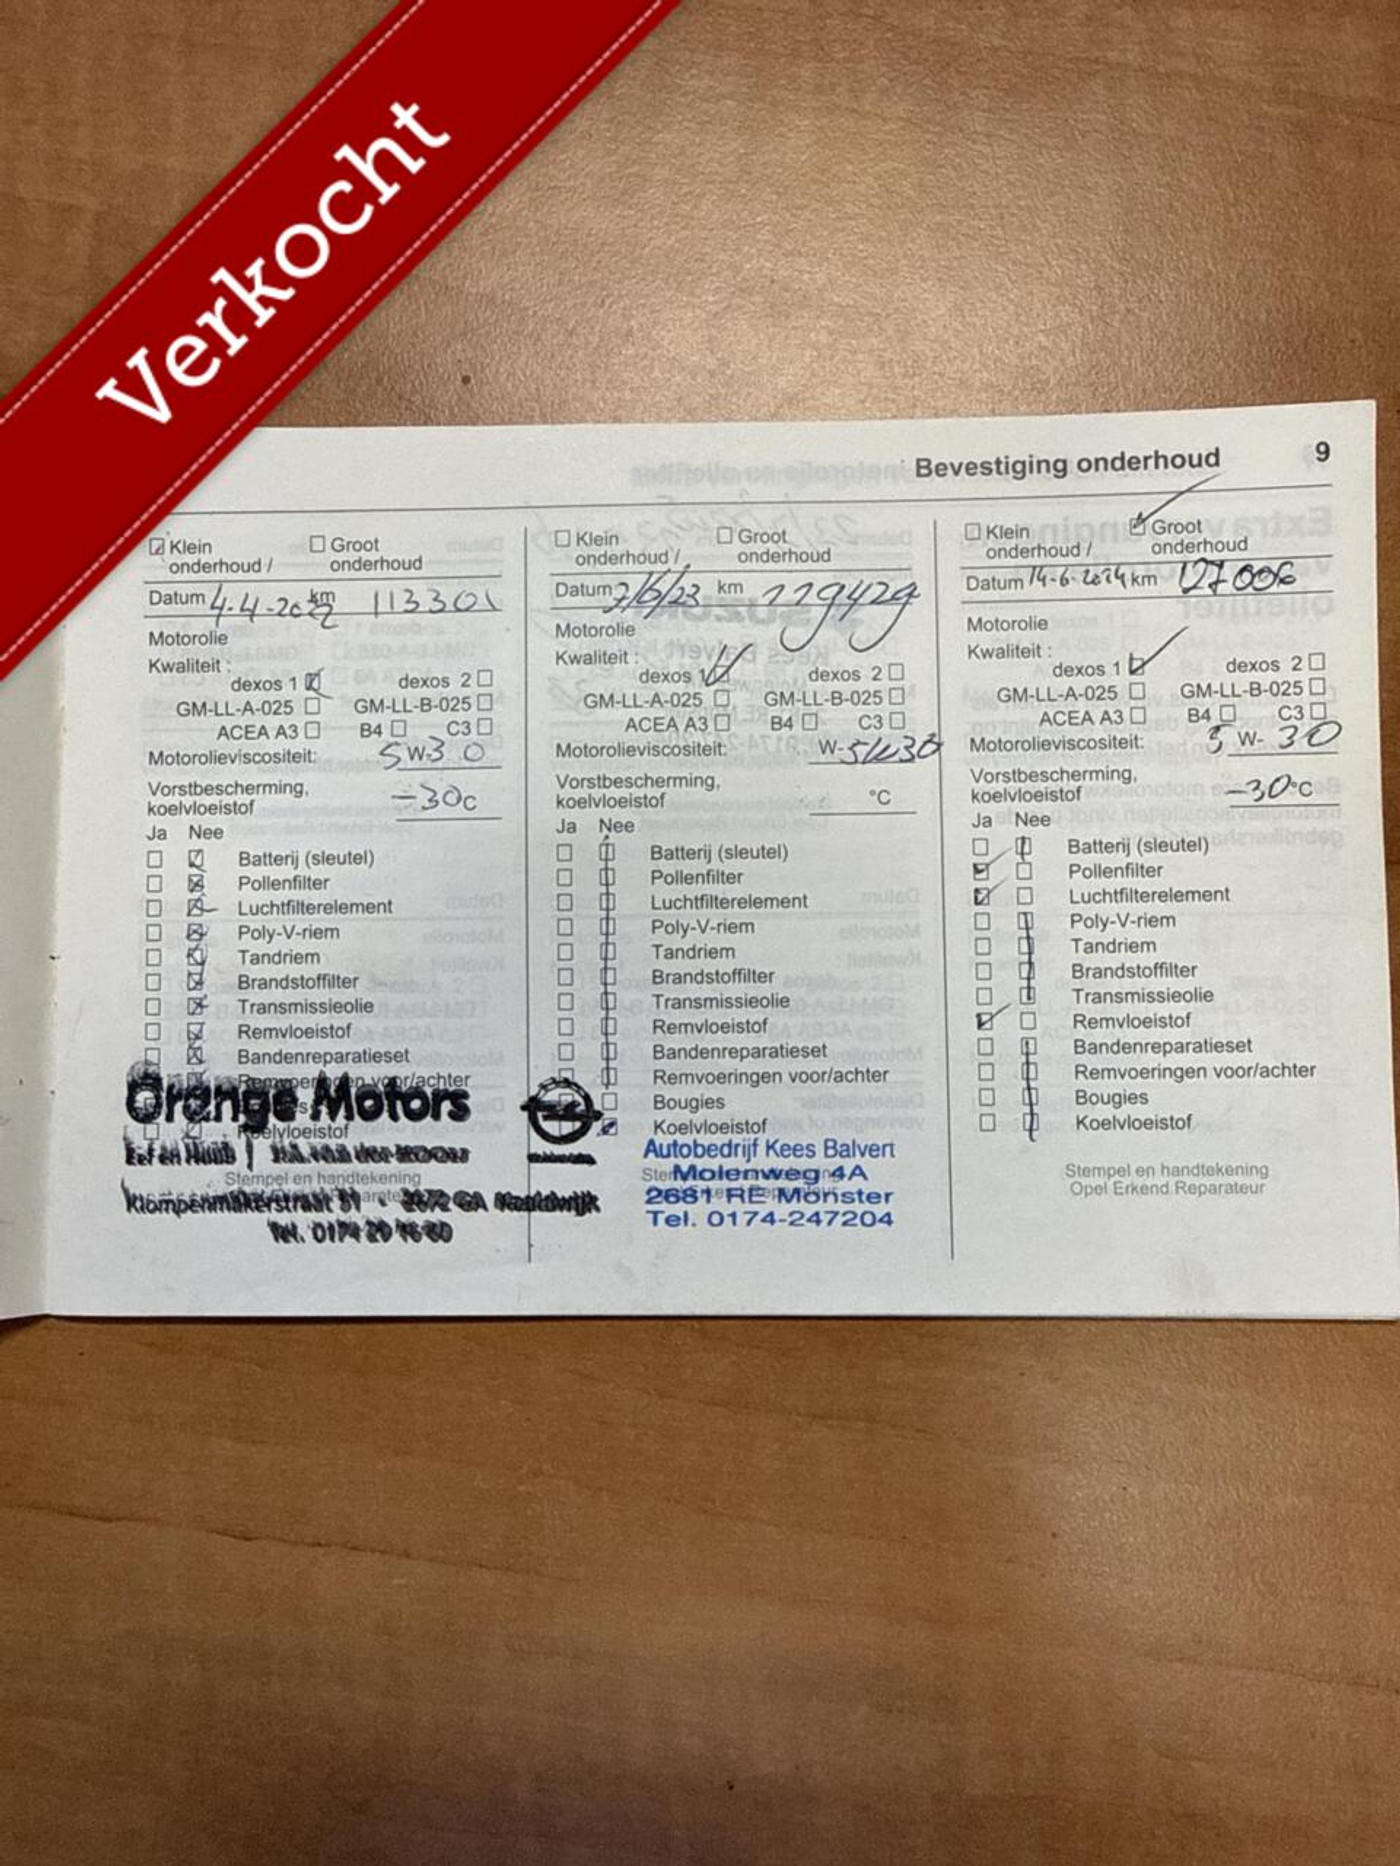 Verkocht
Bevestiging onderhoud 9
Klein onderhoud /
Groot onderhoud
Datum 4-4-2022 km 113301
Motorolie
Kwaliteit :
dexos 1 dexos 2
GM-LL-A-025 GM-LL-B-025
ACEA A3 B4 C3
Motorolieviscositeit: 5W-30
Vorstbescherming,
koelvloeistof -30°C
Ja Nee
Batterij (sleutel)
Pollenfilter
Luchtfilterelement
Poly-V-riem
Tandriem
Brandstoffilter
Transmissieolie
Remvloeistof
Bandenreparatieset
Remvoeringen voor/achter
Koelvloeistof
Orange Motors
Stempel en handtekening
Klompenmakerstraat 51 GA
Tel. 0174
Klein onderhoud /
Groot onderhoud
Datum 7/6/23 km 119429
Motorolie
Kwaliteit :
dexos 1 dexos 2
GM-LL-A-025 GM-LL-B-025
ACEA A3 B4 C3
Motorolieviscositeit: W-5W30
Vorstbescherming,
koelvloeistof °C
Ja Nee
Batterij (sleutel)
Pollenfilter
Luchtfilterelement
Poly-V-riem
Tandriem
Brandstoffilter
Transmissieolie
Remvloeistof
Bandenreparatieset
Remvoeringen voor/achter
Bougies
Koelvloeistof
Autobedrijf Kees Balvert
Molenweg 4A
2681 RE Monster
Tel. 0174-247204
Klein onderhoud /
Groot onderhoud
Datum 14-6-2024 km 127006
Motorolie
Kwaliteit :
dexos 1 dexos 2
GM-LL-A-025 GM-LL-B-025
ACEA A3 B4 C3
Motorolieviscositeit: 5 W- 30
Vorstbescherming,
koelvloeistof -30°C
Ja Nee
Batterij (sleutel)
Pollenfilter
Luchtfilterelement
Poly-V-riem
Tandriem
Brandstoffilter
Transmissieolie
Remvloeistof
Bandenreparatieset
Remvoeringen voor/achter
Bougies
Koelvloeistof
Stempel en handtekening
Opel Erkend Reparateur